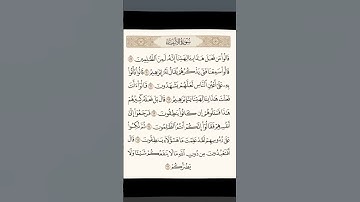 سورة الأنبياء
قَالُوا۟ مَن فَعَلَ هَـٰذَا بِـَٔالِهَتِنَآ إِنَّهُۥ لَمِنَ ٱلظَّـٰلِمِينَ
قَالُوا۟ سَمِعْنَا فَتًى يَذْكُرُهُمْ يُقَالُ لَهُۥٓ إِبْرَٰهِيمُ قَالُوا۟ فَأْتُوا۟
بِهِۦ عَلَىٰٓ أَعْيُنِ ٱلنَّاسِ لَعَلَّهُمْ يَشْهَدُونَ قَالُوٓا۟ ءَأَنتَ
فَعَلْتَ هَـٰذَا بِـَٔالِهَتِنَا يَـٰٓإِبْرَٰهِيمُ قَالَ بَلْ فَعَلَهُۥ كَبِيرُهُمْ
هَـٰذَا فَسْـَٔلُوهُمْ إِن كَانُوا۟ يَنطِقُونَ فَرَجَعُوٓا۟ إِلَىٰٓ
أَنفُسِهِمْ فَقَالُوٓا۟ إِنَّكُمْ أَنتُمُ ٱلظَّـٰلِمُونَ ثُمَّ نُكِسُوا۟
عَلَىٰ رُءُوسِهِمْ لَقَدْ عَلِمْتَ مَا هَـٰٓؤُلَآءِ يَنطِقُونَ قَالَ
أَفَتَعْبُدُونَ مِن دُونِ ٱللَّهِ مَا لَا يَنفَعُكُمْ شَيْـًٔا وَلَا
يَضُرُّكُمْ